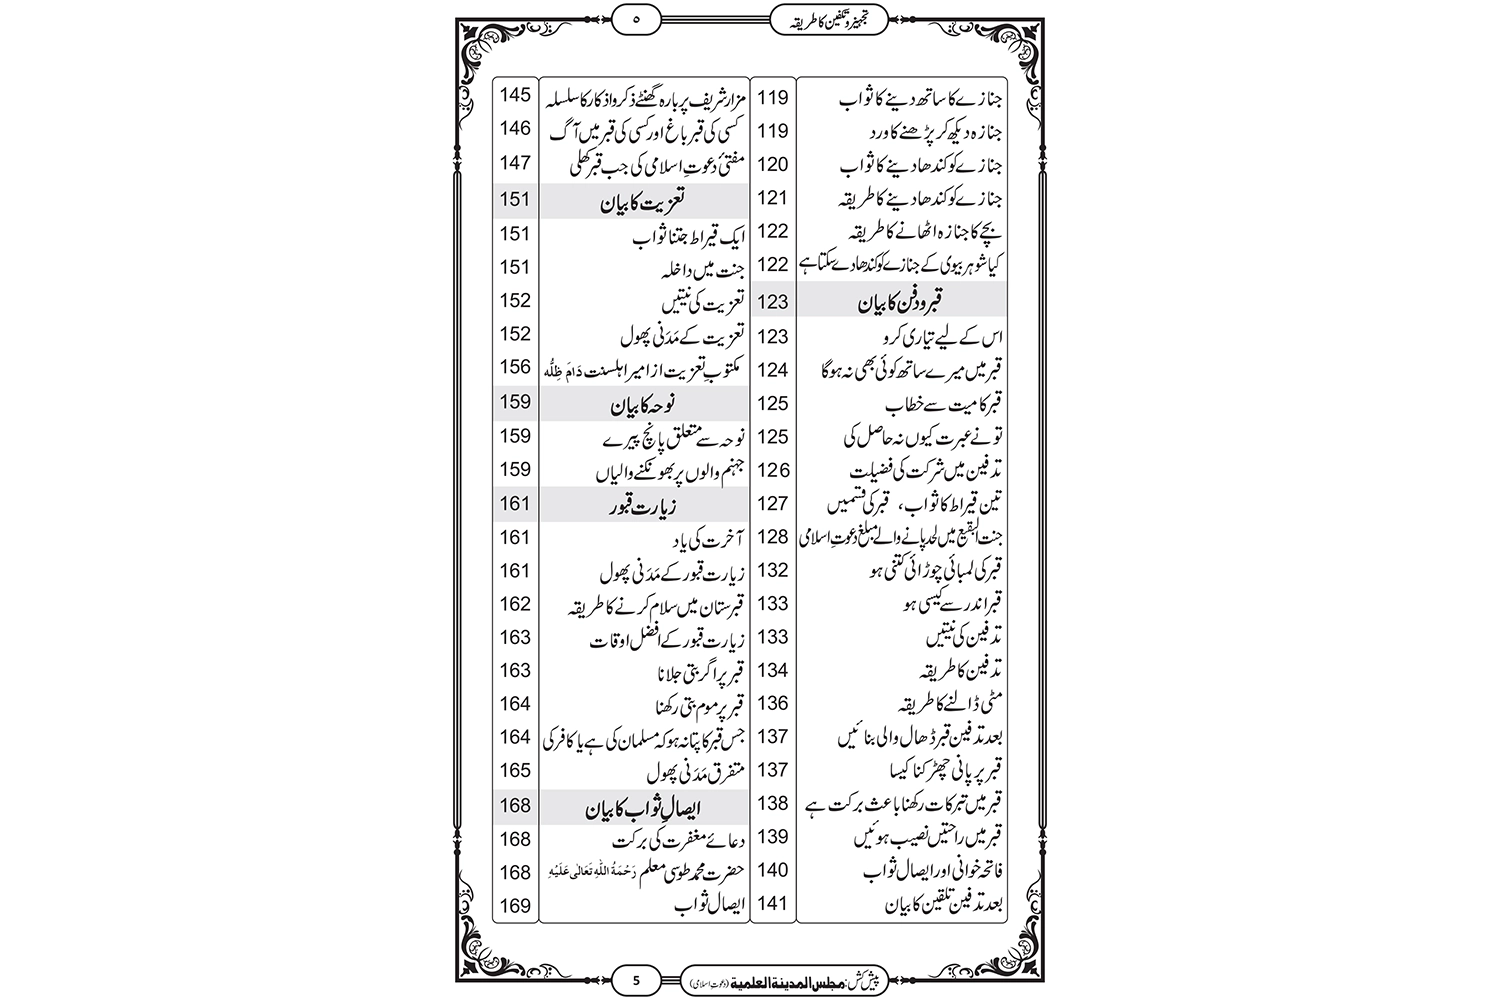 تجہیز و تکفین کا طریقہ
۵
جنازے کا ساتھ دینے کا ثواب 119
جنازہ دیکھ کر پڑھنے کا ورد 119
جنازے کو کندھا دینے کا ثواب 120
جنازے کو کندھا دینے کا طریقہ 121
بچے کا جنازہ اٹھانے کا طریقہ 122
کیا شوہر بیوی کے جنازے کو کندھا دے سکتا ہے 122
قبر و دفن کا بیان 123
اس کے لیے تیاری کرو 123
قبر میں میرے ساتھ کوئی بھی نہ ہوگا 124
قبر کا میت سے خطاب 125
تو نے عبرت کیوں نہ حاصل کی 125
تدفین میں شرکت کی فضیلت 126
تین قیراط کا ثواب، قبر کی قسمیں 127
جنت البقیع میں لحد پانے والے مبلغ دعوتِ اسلامی 128
قبر کی لمبائی چوڑائی کتنی ہو 132
قبر اندر سے کیسی ہو 133
تدفین کی نیتیں 133
تدفین کا طریقہ 134
مٹی ڈالنے کا طریقہ 136
بعد تدفین قبر ڈھال والی بنائیں 137
قبر پر پانی چھڑکنا کیسا 137
قبر میں تبرکات رکھنا باعث برکت ہے 138
قبر میں راحتیں نصیب ہوئیں 139
فاتحہ خوانی اور ایصال ثواب 140
بعد تدفین تلقین کا بیان 141
مزار شریف پر بارہ گھنٹے ذکر و اذکار کا سلسلہ 145
کسی کی قبر باغ اور کسی کی قبر میں آگ 146
مفتیٔ دعوتِ اسلامی کی جب قبر کھلی 147
تعزیت کا بیان 151
ایک قیراط جتنا ثواب 151
جنت میں داخلہ 151
تعزیت کی نیتیں 152
تعزیت کے مَدَنی پھول 152
مکتوبِ تعزیت از امیر اہلسنت دَامَ ظِلُّه 156
نوحہ کا بیان 159
نوحہ سے متعلق پانچ پیرے 159
جہنم والوں پر بھونکنے والیاں 159
زیارت قبور 161
آخرت کی یاد 161
زیارت قبور کے مَدَنی پھول 161
قبرستان میں سلام کرنے کا طریقہ 162
زیارت قبور کے افضل اوقات 163
قبر پر اگر بتی جلانا 163
قبر پر موم بتی رکھنا 164
جس قبر کا پتا نہ ہو کہ مسلمان کی ہے یا کافر کی 164
متفرق مَدَنی پھول 165
ایصالِ ثواب کا بیان 168
دعائے مغفرت کی برکت 168
حضرت محمد طوسی معلم رَحْمَةُ اللّٰهِ تَعَالٰی عَلَيْهِ 168
ایصال ثواب 169
پیش کش: مجلس المدینۃ العلمیۃ (دعوت اسلامی)
5